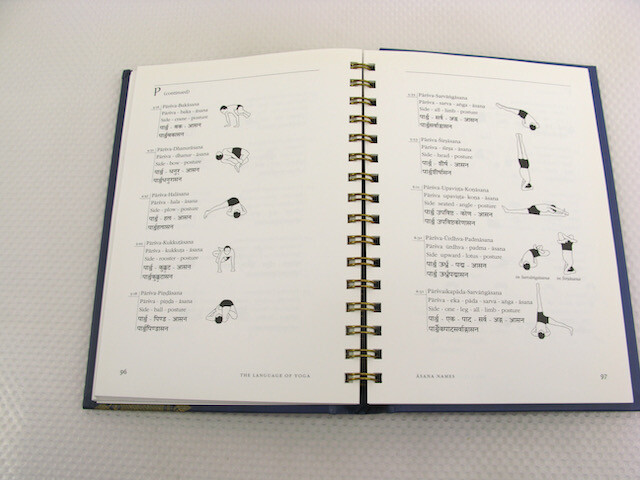 P (continued)
Pārśva Bakāsana
Pārśva - baka - āsana
Side - crane - posture
पार्श्व - बक - आसन
पार्श्वबकासन
Pārśva Dhanurāsana
Pārśva - dhanur - āsana
Side - bow - posture
पार्श्व - धनुर् - आसन
पार्श्वधनुरासन
Pārśva Halāsana
Pārśva - hala - āsana
Side - plow - posture
पार्श्व - हल - आसन
पार्श्वहलासन
Pārśva Kukkuṭāsana
Pārśva - kukkuṭa - āsana
Side - rooster - posture
पार्श्व - कुक्कुट - आसन
पार्श्वकुक्कुटासन
Pārśva Piṇḍāsana
Pārśva - piṇḍa - āsana
Side - ball - posture
पार्श्व - पिण्ड - आसन
पार्श्वपिण्डासन
96
THE LANGUAGE OF YOGA
Pārśva Sarvāṅgāsana
Pārśva - sarva - aṅga - āsana
Side - all - limb - posture
पार्श्व - सर्व - अङ्ग - आसन
पार्श्वसर्वाङ्गासन
Pārśva Śīrṣāsana
Pārśva - śīrṣa - āsana
Side - head - posture
पार्श्व - शीर्ष - आसन
पार्श्वशीर्षासन
Pārśva Upaviṣṭa Koṇāsana
Pārśva - upaviṣṭa - koṇa - āsana
Side - seated - angle - posture
पार्श्व - उपविष्ट - कोण - आसन
पार्श्व उपविष्टकोणासन
Pārśva Ūrdhva Padmāsana
Pārśva - ūrdhva - padma - āsana
Side - upward - lotus - posture
पार्श्व - ऊर्ध्व - पद्म - आसन
पार्श्व ऊर्ध्वपद्मासन
in Sarvāṅgāsana
in Śīrṣāsana
Pārśvaikapāda Sarvāṅgāsana
Pārśva - eka - pāda - sarva - aṅga - āsana
Side - one - leg - all - limb - posture
पार्श्व - एक - पाद - सर्व - अङ्ग - आसन
पार्श्वैकपादसर्वाङ्गासन
ĀSANA NAMES
97